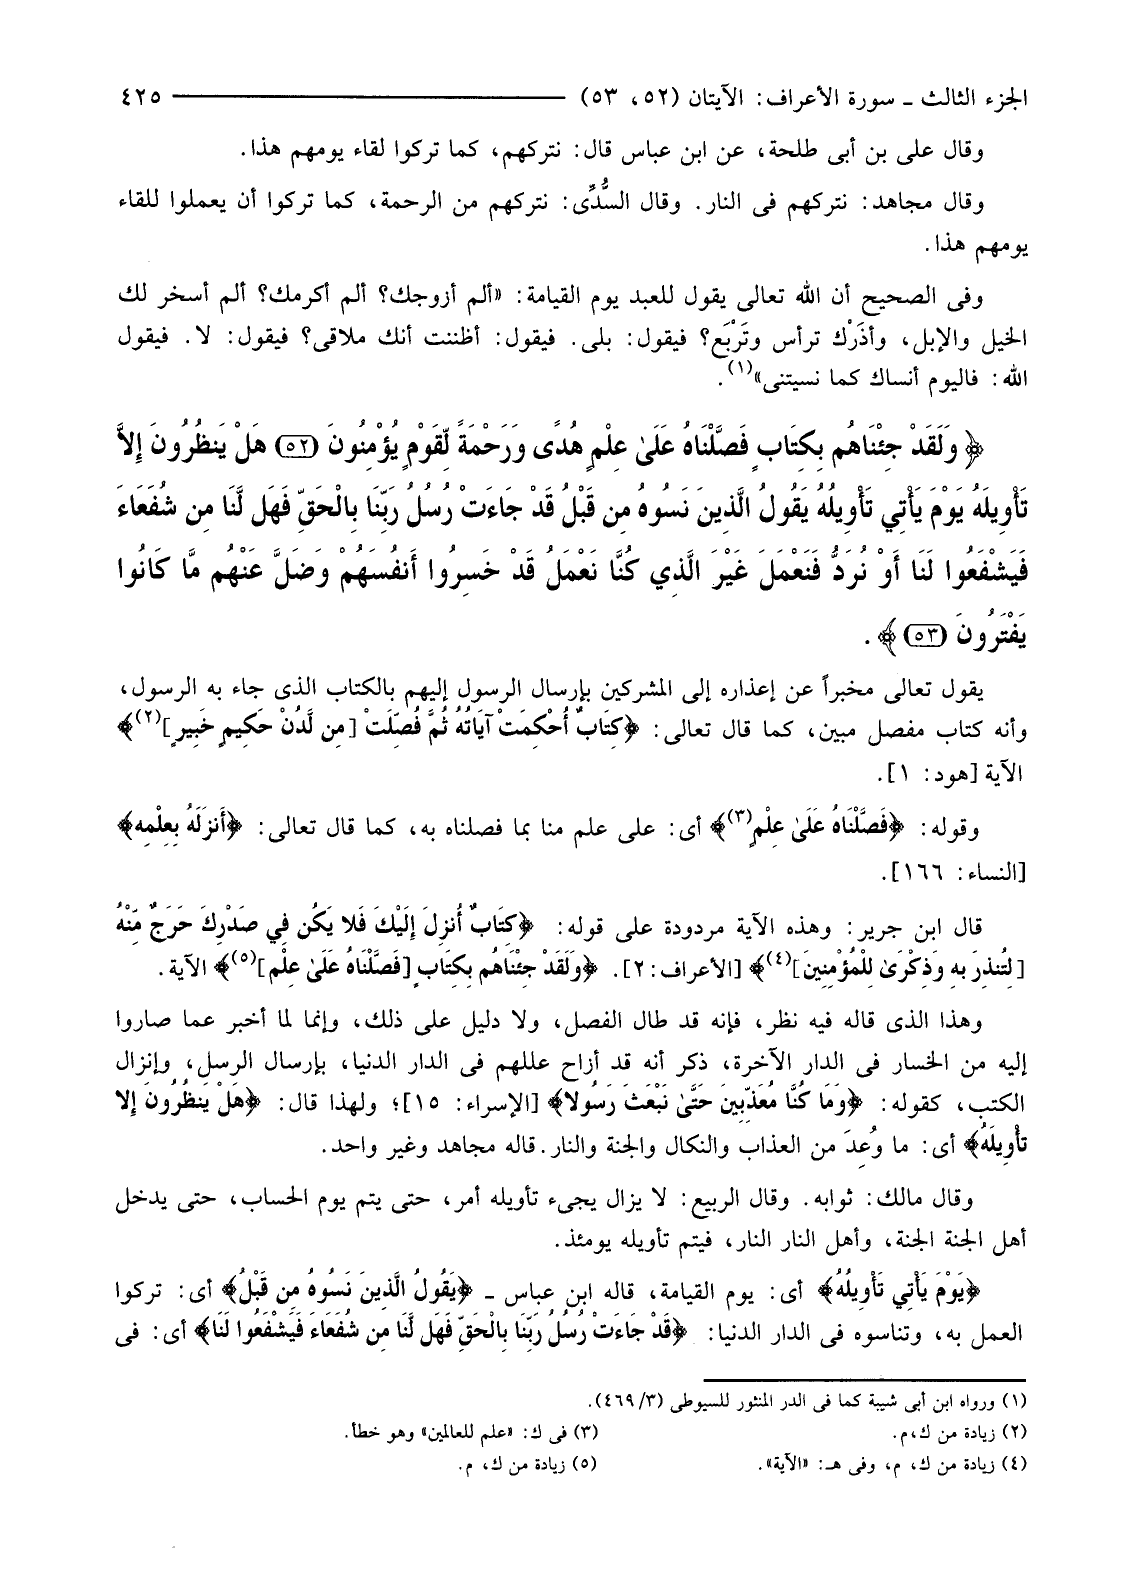 الجزء الثالث ـ سورة الأعراف: الآيتان (٥٢، ٥٣) ٤٢٥
وقال على بن أبى طلحة، عن ابن عباس قال: نتركهم، كما تركوا لقاء يومهم هذا.
وقال مجاهد: نتركهم فى النار. وقال السُّدِّى: نتركهم من الرحمة، كما تركوا أن يعملوا للقاء
يومهم هذا.
وفى الصحيح أن الله تعالى يقول للعبد يوم القيامة: «ألم أزوجك؟ ألم أكرمك؟ ألم أسخر لك
الخيل والإبل، وأذَرْك ترأس وتَرْبَع؟ فيقول: بلى. فيقول: أظننت أنك ملاقى؟ فيقول: لا. فيقول
الله: فاليوم أنساك كما نسيتنى»(١).
﴿ وَلَقَدْ جِئْنَاهُم بِكِتَابٍ فَصَّلْنَاهُ عَلَىٰ عِلْمٍ هُدًى وَرَحْمَةً لِّقَوْمٍ يُؤْمِنُونَ (٥٢) هَلْ يَنظُرُونَ إِلاَّ
تَأْوِيلَهُ يَوْمَ يَأْتِي تَأْوِيلُهُ يَقُولُ الَّذِينَ نَسُوهُ مِن قَبْلُ قَدْ جَاءَتْ رُسُلُ رَبِّنَا بِالْحَقِّ فَهَل لَّنَا مِن شُفَعَاءَ
فَيَشْفَعُوا لَنَا أَوْ نُرَدُّ فَنَعْمَلَ غَيْرَ الَّذِي كُنَّا نَعْمَلُ قَدْ خَسِرُوا أَنفُسَهُمْ وَضَلَّ عَنْهُم مَّا كَانُوا
يَفْتَرُونَ (٥٣) ﴾ .
يقول تعالى مخبراً عن إعذاره إلى المشركين بإرسال الرسول إليهم بالكتاب الذى جاء به الرسول،
وأنه كتاب مفصل مبين، كما قال تعالى: ﴿كِتَابٌ أُحْكِمَتْ آيَاتُهُ ثُمَّ فُصِّلَتْ [مِن لَّدُنْ حَكِيمٍ خَبِيرٍ](٢)﴾
الآية [هود: ١].
وقوله: ﴿فَصَّلْنَاهُ عَلَىٰ عِلْمٍ(٣)﴾ أى: على علم منا بما فصلناه به، كما قال تعالى: ﴿أَنزَلَهُ بِعِلْمِهِ﴾
[النساء: ١٦٦].
قال ابن جرير: وهذه الآية مردودة على قوله: ﴿كِتَابٌ أُنزِلَ إِلَيْكَ فَلا يَكُن فِي صَدْرِكَ حَرَجٌ مِّنْهُ
[لِتُنذِرَ بِهِ وَذِكْرَىٰ لِلْمُؤْمِنِينَ](٤)﴾ [الأعراف: ٢]. ﴿وَلَقَدْ جِئْنَاهُم بِكِتَابٍ [فَصَّلْنَاهُ عَلَىٰ عِلْمٍ](٥)﴾ الآية.
وهذا الذى قاله فيه نظر، فإنه قد طال الفصل، ولا دليل على ذلك، وإنما لما أخبر عما صاروا
إليه من الخسار فى الدار الآخرة، ذكر أنه قد أزاح عللهم فى الدار الدنيا، بإرسال الرسل، وإنزال
الكتب، كقوله: ﴿وَمَا كُنَّا مُعَذِّبِينَ حَتَّىٰ نَبْعَثَ رَسُولا﴾ [الإسراء: ١٥]؛ ولهذا قال: ﴿هَلْ يَنظُرُونَ إِلا
تَأْوِيلَهُ﴾ أى: ما وُعِدَ من العذاب والنكال والجنة والنار. قاله مجاهد وغير واحد.
وقال مالك: ثوابه. وقال الربيع: لا يزال يجىء تأويله أمر، حتى يتم يوم الحساب، حتى يدخل
أهل الجنة الجنة، وأهل النار النار، فيتم تأويله يومئذ.
﴿يَوْمَ يَأْتِي تَأْوِيلُهُ﴾ أى: يوم القيامة، قاله ابن عباس ـ ﴿يَقُولُ الَّذِينَ نَسُوهُ مِن قَبْلُ﴾ أى: تركوا
العمل به، وتناسوه فى الدار الدنيا: ﴿قَدْ جَاءَتْ رُسُلُ رَبِّنَا بِالْحَقِّ فَهَل لَّنَا مِن شُفَعَاءَ فَيَشْفَعُوا لَنَا﴾ أى: فى
(١) ورواه ابن أبى شيبة كما فى الدر المنثور للسيوطى (٤٦٩/٣).
(٢) زيادة من ك،م. (٣) فى ك: «علم للعالمين» وهو خطأ.
(٤) زيادة من ك، م، وفى هـ: «الآية». (٥) زيادة من ك، م.